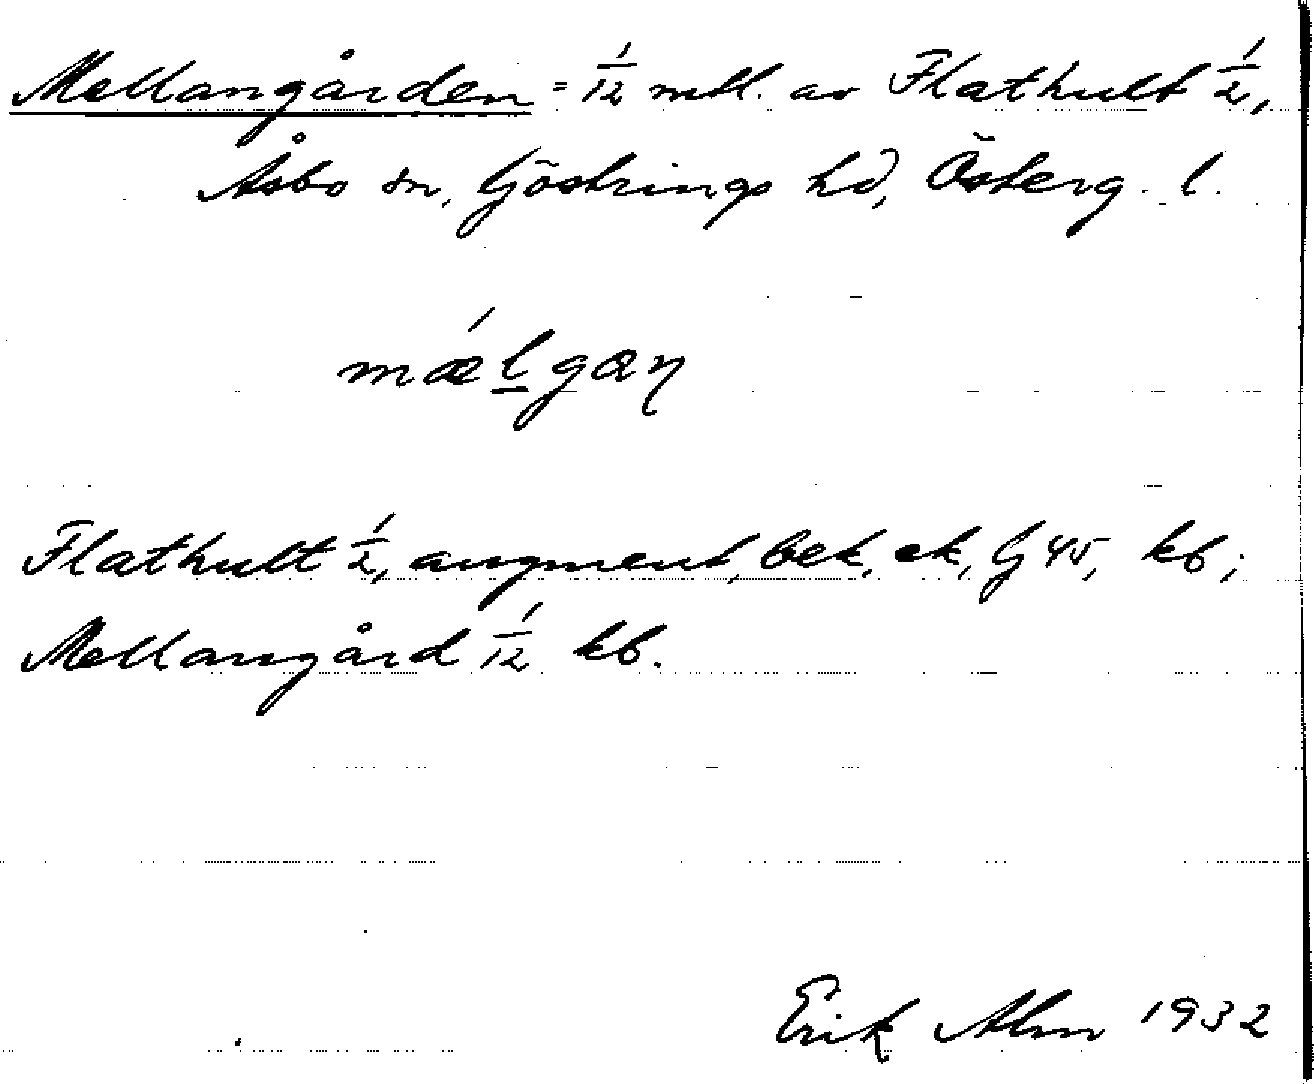 Mellangården = 1/12 mtl. av Flathult 1/2,
Åsbo sn, Göstrings hd, Österg. l.
mǽlgaꞃ
Flathult 1/2, augment, bek, ek, G 45, kb;
Mellangård 1/12 kb.
Erik Alm 1932